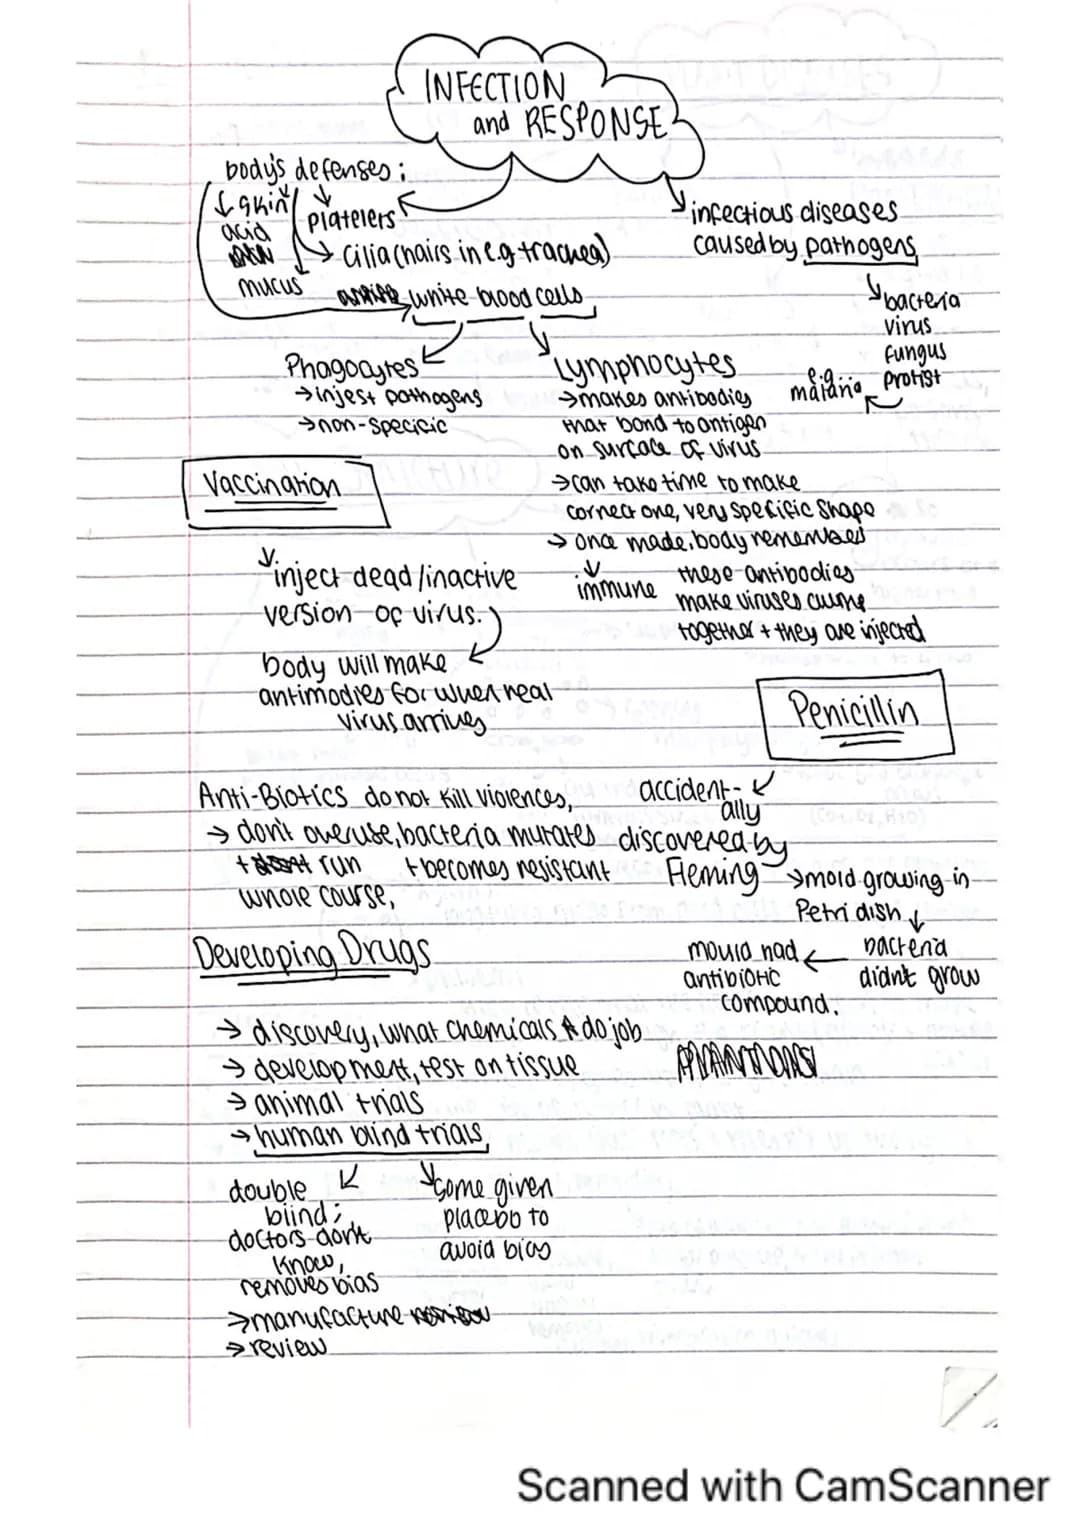 INFECTION
and RESPONSE
body's defenses:
skin
acid
mucus
platelers
→ cilia (hairs in e.g trachea)
white blood cells
infectious diseases
caused by pathogens
bacteria
virus
fungus
protist
e.g.
malaria
Phagocytes
→ injest pathogens
→ non-specific
Lymphocytes
→ makes antibodies
that bond to antigen
on surface of virus
→ can take time to make
correct one, very specific shape
→ once made, body remembers
immune
these antibodies
make viruses clump
together + they are injected
Vaccination
inject dead/inactive
version of virus.
body will make
antimodies for when real
virus arrives
Penicillin
accident-
ally
discovered by
Fleming
→ mold growing in
Petri dish
bacteria
didn't grow
mould had
antibiotic
compound.
Anti-Biotics do not kill
→ don't overuse, bacteria mutates
+ becomes resistant
+ run
whole course,
Developing Drugs
→ discovery, what chemicals do job
→ development, test on tissue
→ animal trials
→ human blind trials,
double
blind;
doctors don't
know,
removes bias
some given
placebo to
avoid bias
→ manufacture
→ review
Scanned with CamScanner